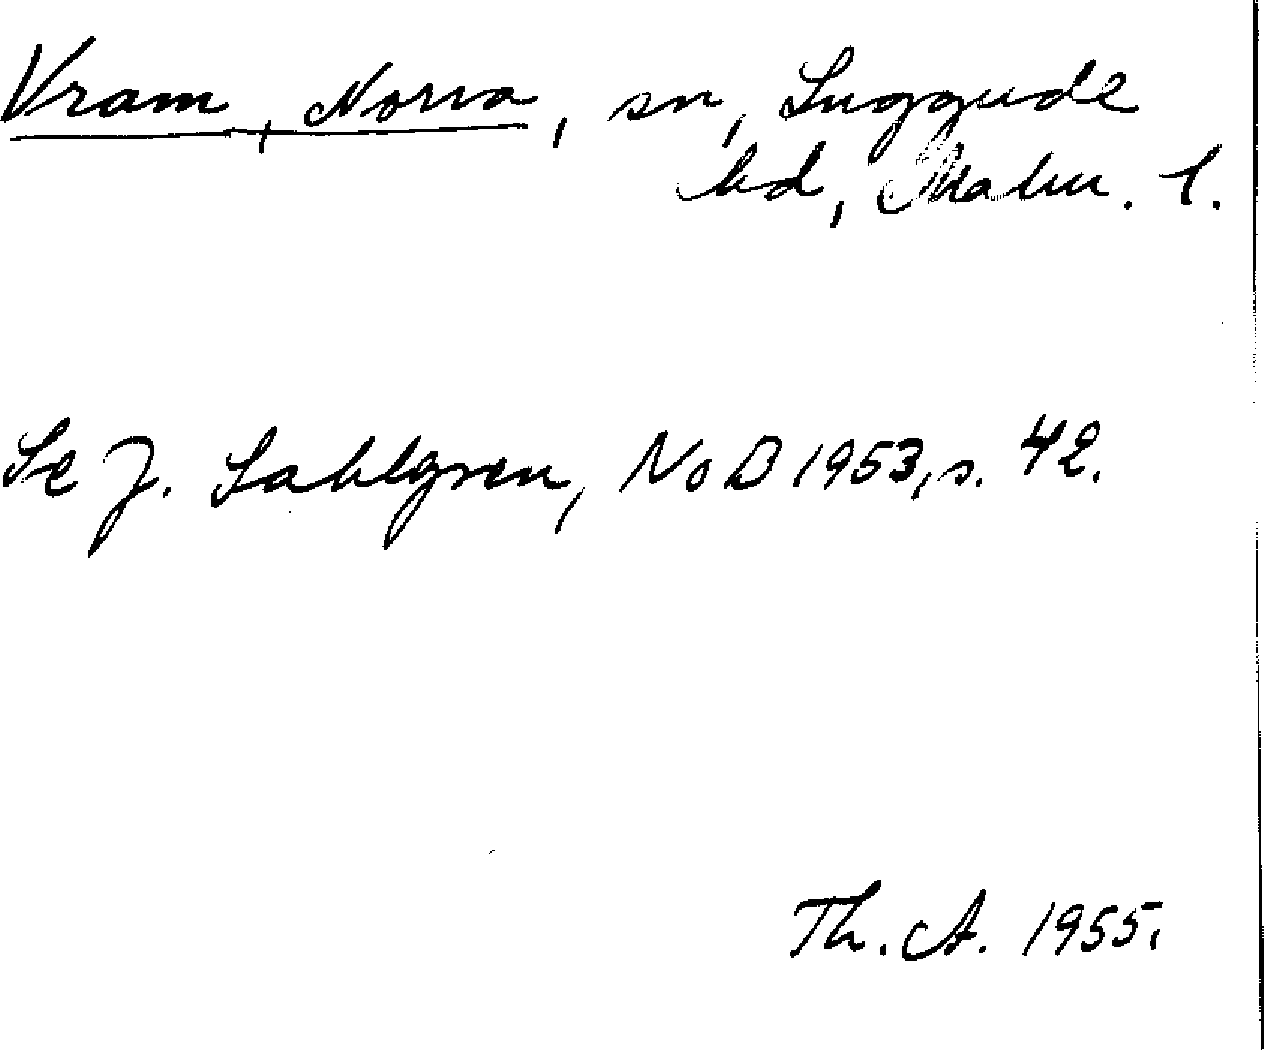 Vram, Norra, sn, Luggude
hd, Malm. l.
Se J. Sahlgren, NoB 1953, s. 42.
Th. A. 1955.